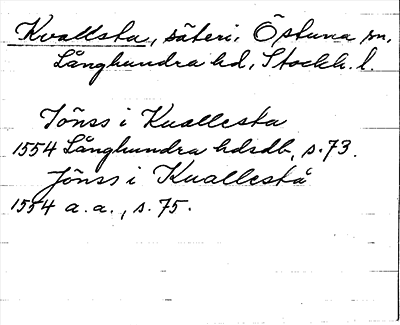 Kvallsta, säteri, Östuna sn,
Långhundra hd, Stockh. l.
Jönss i Kuallesta
1554 Långhundra hdsdb, s. 73.
Jönss i Kuallestå
1554 a.a., s. 75.